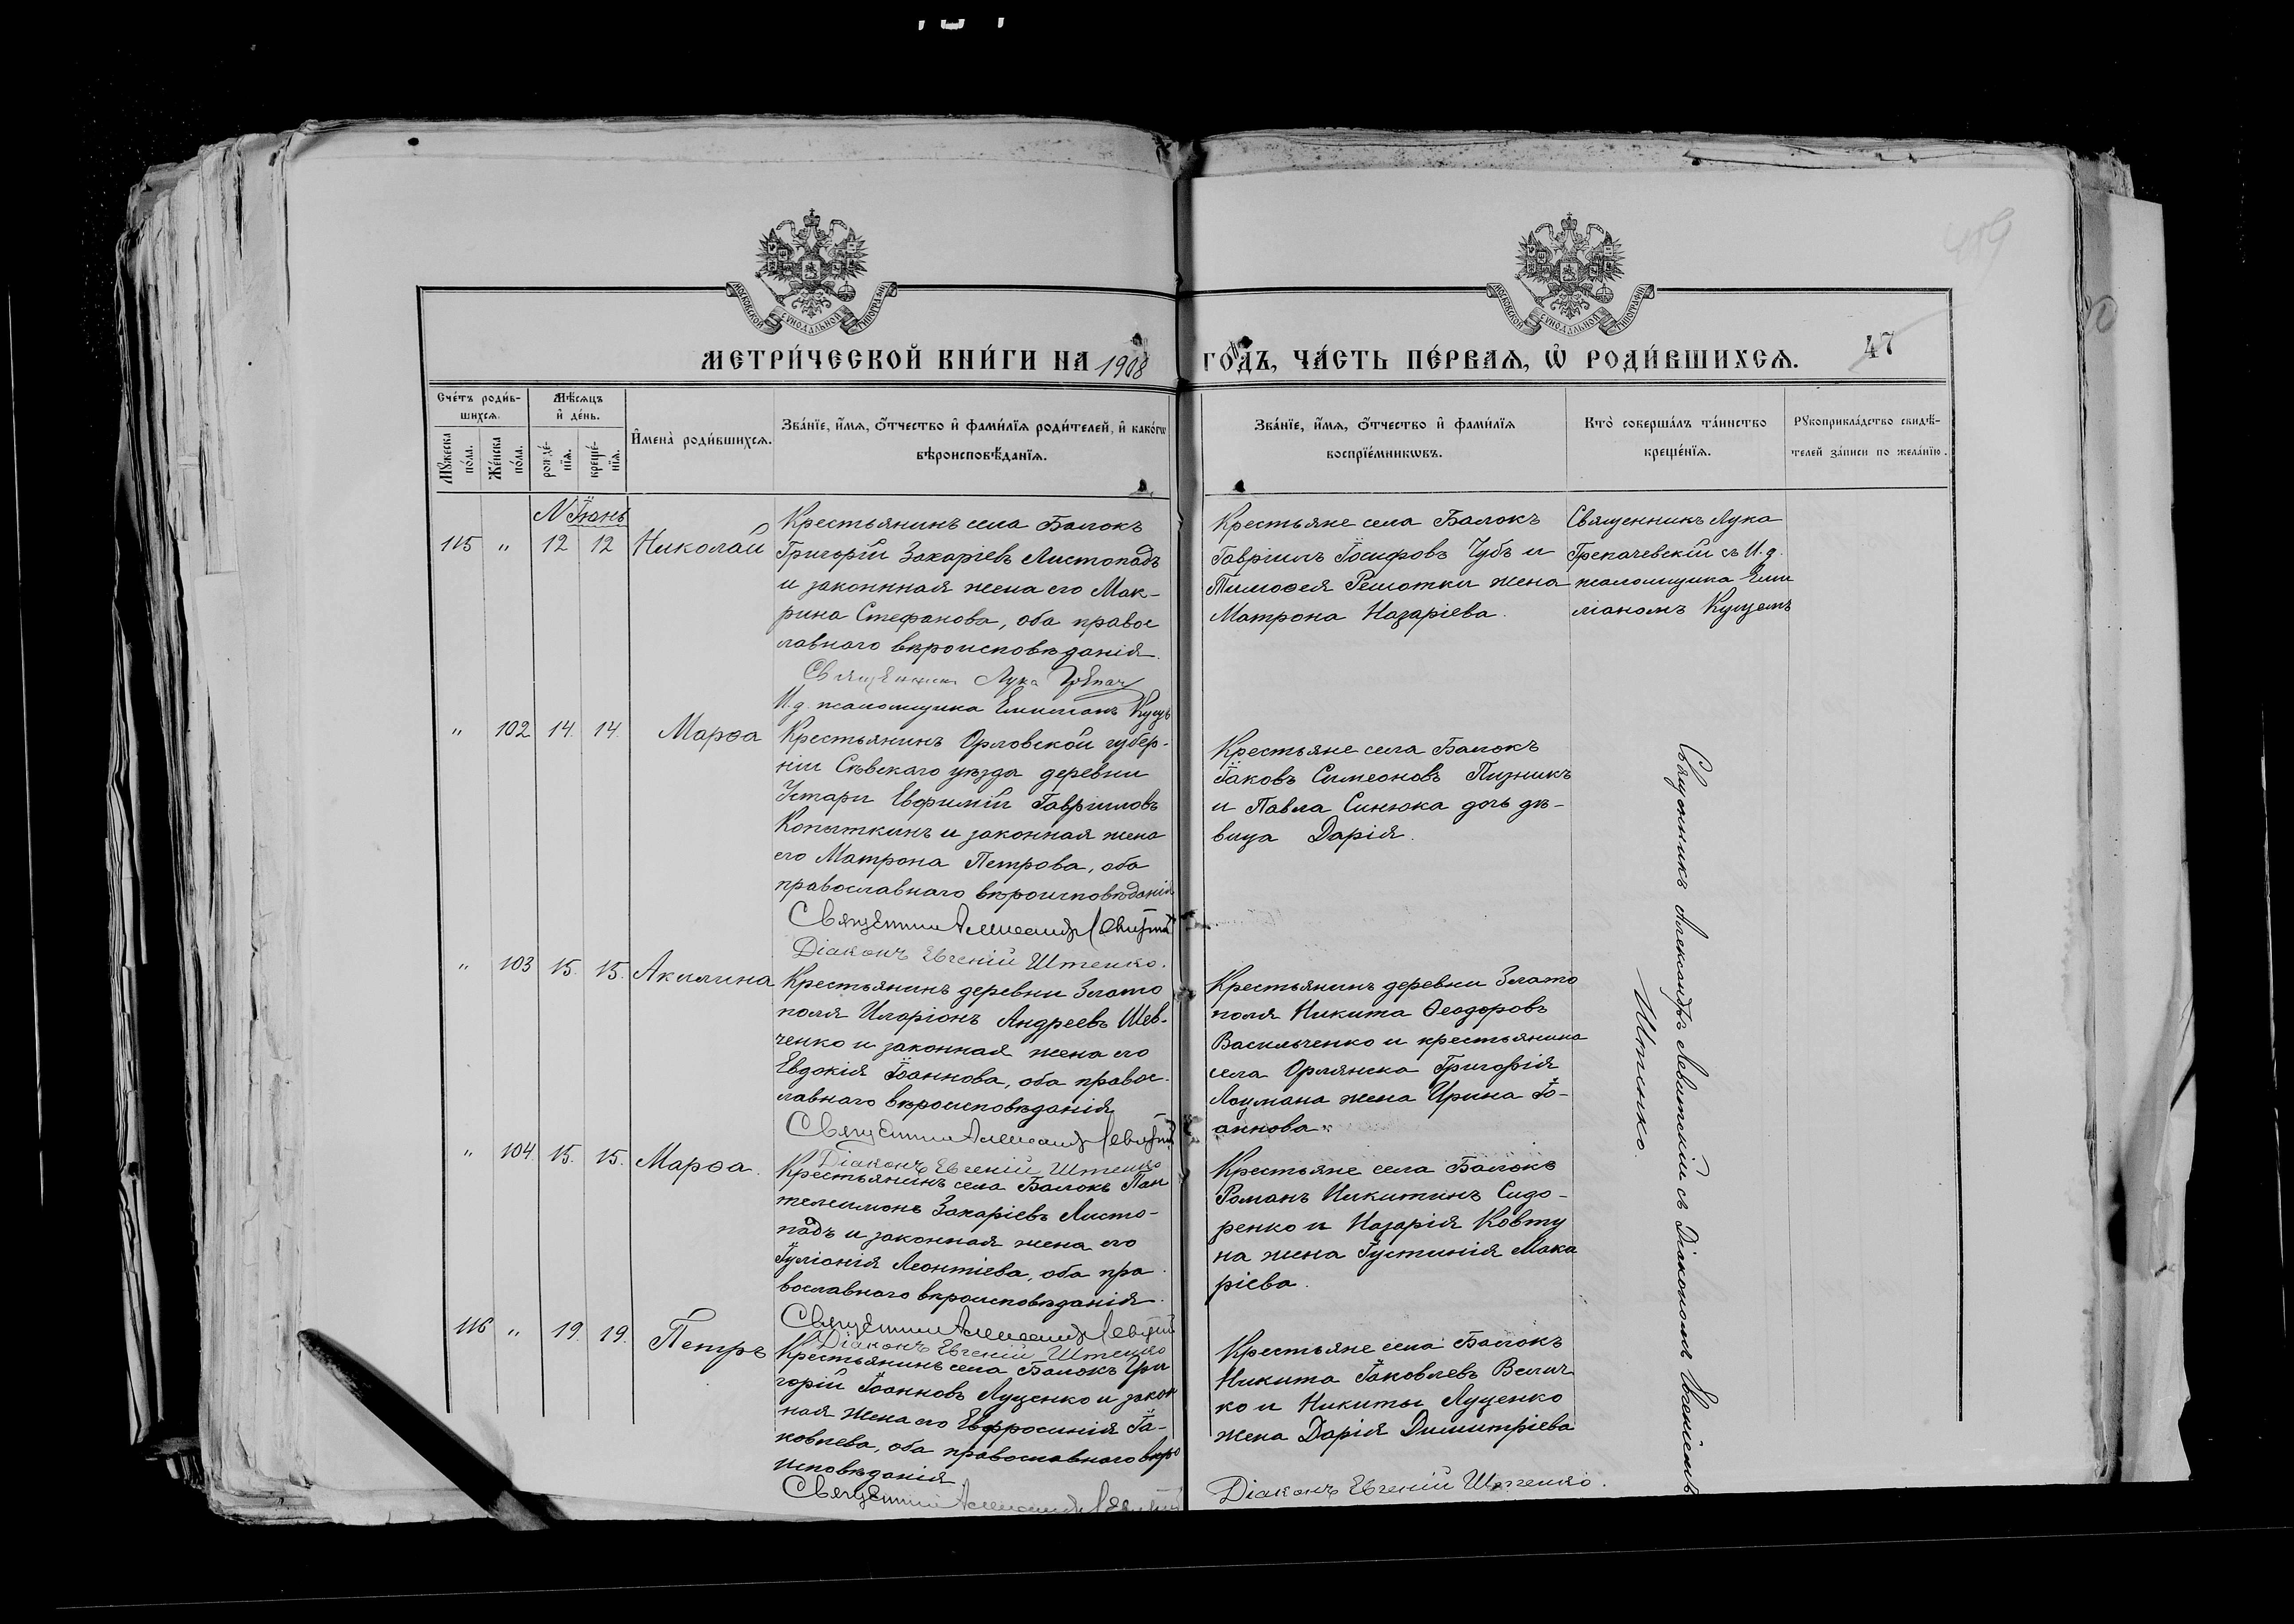 МОСКОВСКОЙ СУНОДАЛЬНОЙ ТИПОГРАФІИ
МОСКОВСКОЙ СУНОДАЛЬНОЙ ТИПОГРАФІИ
МЕТРИ́ЧЕСКОЙ КНИ́ГИ НА 1908
ГО́ДЪ, ЧА́СТЬ ПЕ́РВАѦ, Ѡ҆ РОДИ́ВШИХСѦ.
47
Сче́тъ роди́в-
шихсѧ.
Мѣ́сѧцъ
и҆ де́нь.
Мꙋ́жеска по́ла.
Же́нска по́ла.
рожде́-
нїѧ.
креще́-
нїѧ.
И҆мена̀ роди́вшихсѧ.
Зва́нїе, и҆́мѧ, ѻ҆́тчество и҆ фами́лїѧ роди́телей, и҆ како́гѡ
вѣроисповѣ́данїѧ.
Зва́нїе, и҆́мѧ, ѻ҆́тчество и҆ фами́лїѧ
воспрїе́мникѡвъ.
Кто̀ соверша́лъ та́инство
креще́нїѧ.
Рꙋкоприкла́дство свидѣ́-
телей за́писи по жела́нїю.
Іюнь
115 " 12 12 Николай
Крестьянинъ села Балокъ
Григорій Захаріевъ Листопадъ
и законная жена его Мак-
рина Стефанова, оба правос
лавнаго вѣроисповѣданія.
Священникъ Лука
И. д. псаломщика Емиліанъ Куцъ
Крестьяне села Балокъ
Гавріилъ Іосифовъ Чубъ и
Тимоѳея Решотки жена
Матрона Назаріева.
Священникъ Лука
Грепачевскій съ И. д.
псаломщика Еми
ліаномъ Куцемъ
" 102 14. 14. Марѳа
Крестьянинъ Орловской губер-
ніи Сѣвскаго уѣзда деревни
Устари Евфимій Гавріиловъ
Копыткинъ и законная жена
его Матрона Петрова, оба
православнаго вѣроисповѣданія
Священникъ Александръ Левитскій
Діаконъ Евгеній Штепко.
Крестьяне села Балокъ
Іаковъ Симеоновъ Пизникъ
и Павла Синюка дочь дѣ-
вица Дарія.
" 103 15. 15. Акилина
Крестьянинъ деревни Злато
поля Иларіонъ Андреевъ Шев-
ченко и законная жена его
Евдокія Іоаннова, оба правос-
лавнаго вѣроисповѣданія
Священникъ Александръ Левитскій
Діаконъ Евгеній Штепко
Крестьянинъ деревни Злато
поля Никита Ѳеодоровъ
Васильченко и крестьянина
села Орлянска Григорія
жена Ирина Іо-
аннова.
" 104. 15. 15. Марѳа.
Крестьянинъ села Балокъ Пан
телеимонъ Захаріевъ Листо-
падъ и законная жена его
Іуліанія Леонтіева, оба пра
вославнаго вѣроисповѣданія.
Священникъ Александръ Левитскій
Діаконъ Евгеній Штепко
Крестьяне села Балокъ
Романъ Никитинъ Сидо-
ренко и Назарія Ковту
на жена Іустинія Мака
ріева.
116 " 19. 19. Петръ
Крестьянинъ села Балокъ Гри
горій Іоанновъ Луценко и закон
ная жена его Евфросинія Іа-
ковлева, оба православнаго вѣро
исповѣданія
Священникъ Александръ Левитскій
Крестьяне села Балокъ
Никита Іаковлевъ Велич
ко и Никиты Луценко
жена Дарія Димитріева
Діаконъ Евгеній Штепко.
Священникъ Александръ Левитскій съ Діакономъ Евгеніемъ
Штепко.